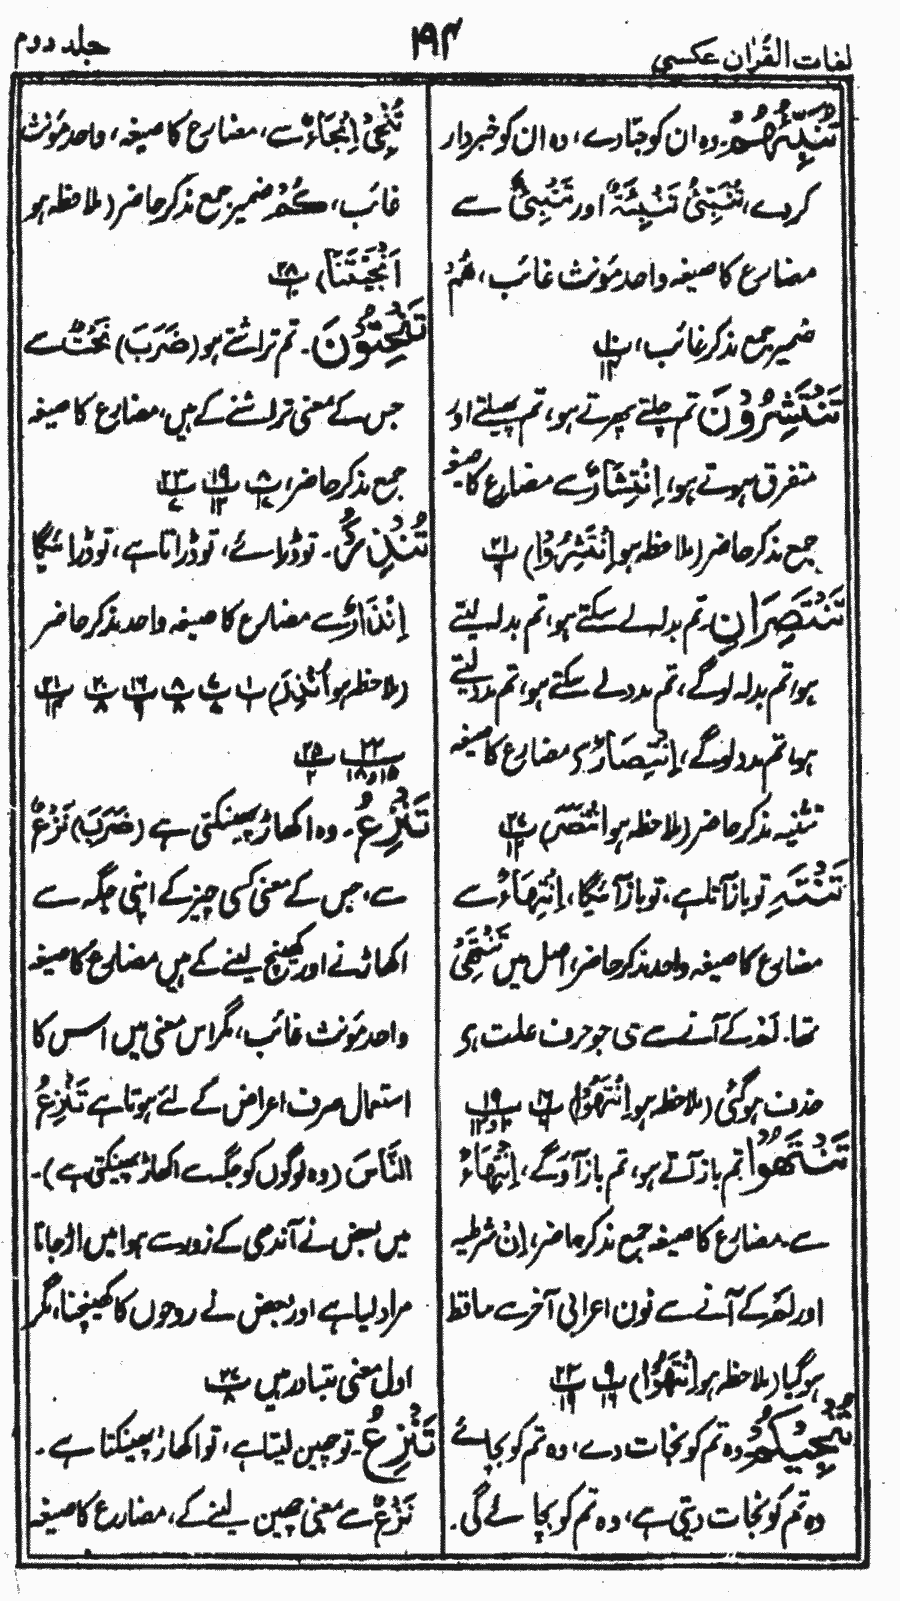 لغات القرآن عکسی
۱۹۴
جلد دوم
تُنَبِّئُهُمْ۔ وہ ان کو جتادے، وہ ان کو خبردار
کردے، تُنَبِّئُ تَنْبِئَةٌ اور تَنْبِئٌ سے
مضارع کا صیغہ واحد مؤنث غائب، هُمْ
ضمیر جمع مذکر غائب،
تَنْتَشِرُوْنَ تم چلتے پھرتے ہو، تم پھیلتے اور
متفرق ہوتے ہو، اِنْتِشَارٌ سے مضارع کا صیغہ
جمع مذکر حاضر (ملاحظہ ہو اِنْتَشِرُوْا) ۲۱
تَنْتَصِرَانِ۔ تم بدلہ لے سکتے ہو، تم بدلہ لیتے
ہو، تم بدلہ لوگے، تم مدد لے سکتے ہو، تم مدد لیتے
ہو، تم مدد لوگے، اِنْتِصَارٌ سے مضارع کا صیغہ
تثنیہ مذکر حاضر (ملاحظہ ہو اِنْتَصَرَ) ۲۷ ۱۲
تَنْتَهِ تو باز آتا ہے، تو باز آئیگا، اِنْتِهَاءٌ سے
مضارع کا صیغہ واحد مذکر حاضر، اصل میں تَنْتَهِیْ
تھا۔ لَمْ کے آنے سے ی جو حرف علت ہے
حذف ہوگئی (ملاحظہ ہو اِنْتَهَوْا) ۱۶ ۱۹
تَنْتَهُوْا تم باز آتے ہو، تم باز آؤگے، اِنْتِهَاءٌ
سے مضارع کا صیغہ جمع مذکر حاضر، اِنْ شرطیہ
اور لَمْ کے آنے سے نون اعرابی آخر سے ساقط
ہوگیا (ملاحظہ ہو اِنْتَهَوْا) ۹ ۱۹ ۲۲ ۱۹
تُنْجِيْكُمْ وہ تم کو نجات دے، وہ تم کو بچائے
وہ تم کو نجات دیتی ہے، وہ تم کو بچائے گی۔
تُنْجِیْ اِنْجَاءٌ سے، مضارع کا صیغہ، واحد مؤنث
غائب، كُمْ ضمیر جمع مذکر حاضر (ملاحظہ ہو
اَنْجَيْتَنَا) ۲۸
تَنْحِتُوْنَ۔ تم تراشتے ہو (ضَرَبَ) نَحْتٌ سے
جس کے معنی تراشنے کے ہیں، مضارع کا صیغہ
جمع مذکر حاضر، ۸ ۱۷ ۱۹ ۱۲ ۲۳ ۷
تُنْذِرُ۔ تو ڈرائے، تو ڈراتا ہے، تو ڈرائیگا
اِنْذَارٌ سے مضارع کا صیغہ واحد مذکر حاضر
(ملاحظہ ہو اُنْذِرَ) ۱ ۱ ۷ ۸ ۸ ۸ ۱۶ ۹ ۲۰ ۸ ۲۱ ۱۳
۲۲ ۱۵ و ۱۸ ۲۵ ۲
تَنْزِعُ۔ وہ اکھاڑ پھینکتی ہے (ضَرَبَ) نَزْعٌ
سے، جس کے معنی کسی چیز کے اپنی جگہ سے
اکھاڑنے اور کھینچ لینے کے ہیں مضارع کا صیغہ
واحد مؤنث غائب، مگر اس معنی میں اس کا
استعمال صرف اعراض کے لئے ہوتا ہے تَنْزِعُ
النَّاسَ (وہ لوگوں کو جگہ سے اکھاڑ پھینکتی ہے)۔
میں بعض نے آندھی کے زور سے ہوا میں اڑجانا
مراد لیا ہے اور بعض نے روحوں کا کھینچنا، مگر
اول معنی متبادر ہیں ۲۷ ۸
تَنْزِعُ۔ تو چھین لیتا ہے، تو اکھاڑ پھینکتا ہے۔
نَزْعٌ سے معنی چھین لینے کے، مضارع کا صیغہ